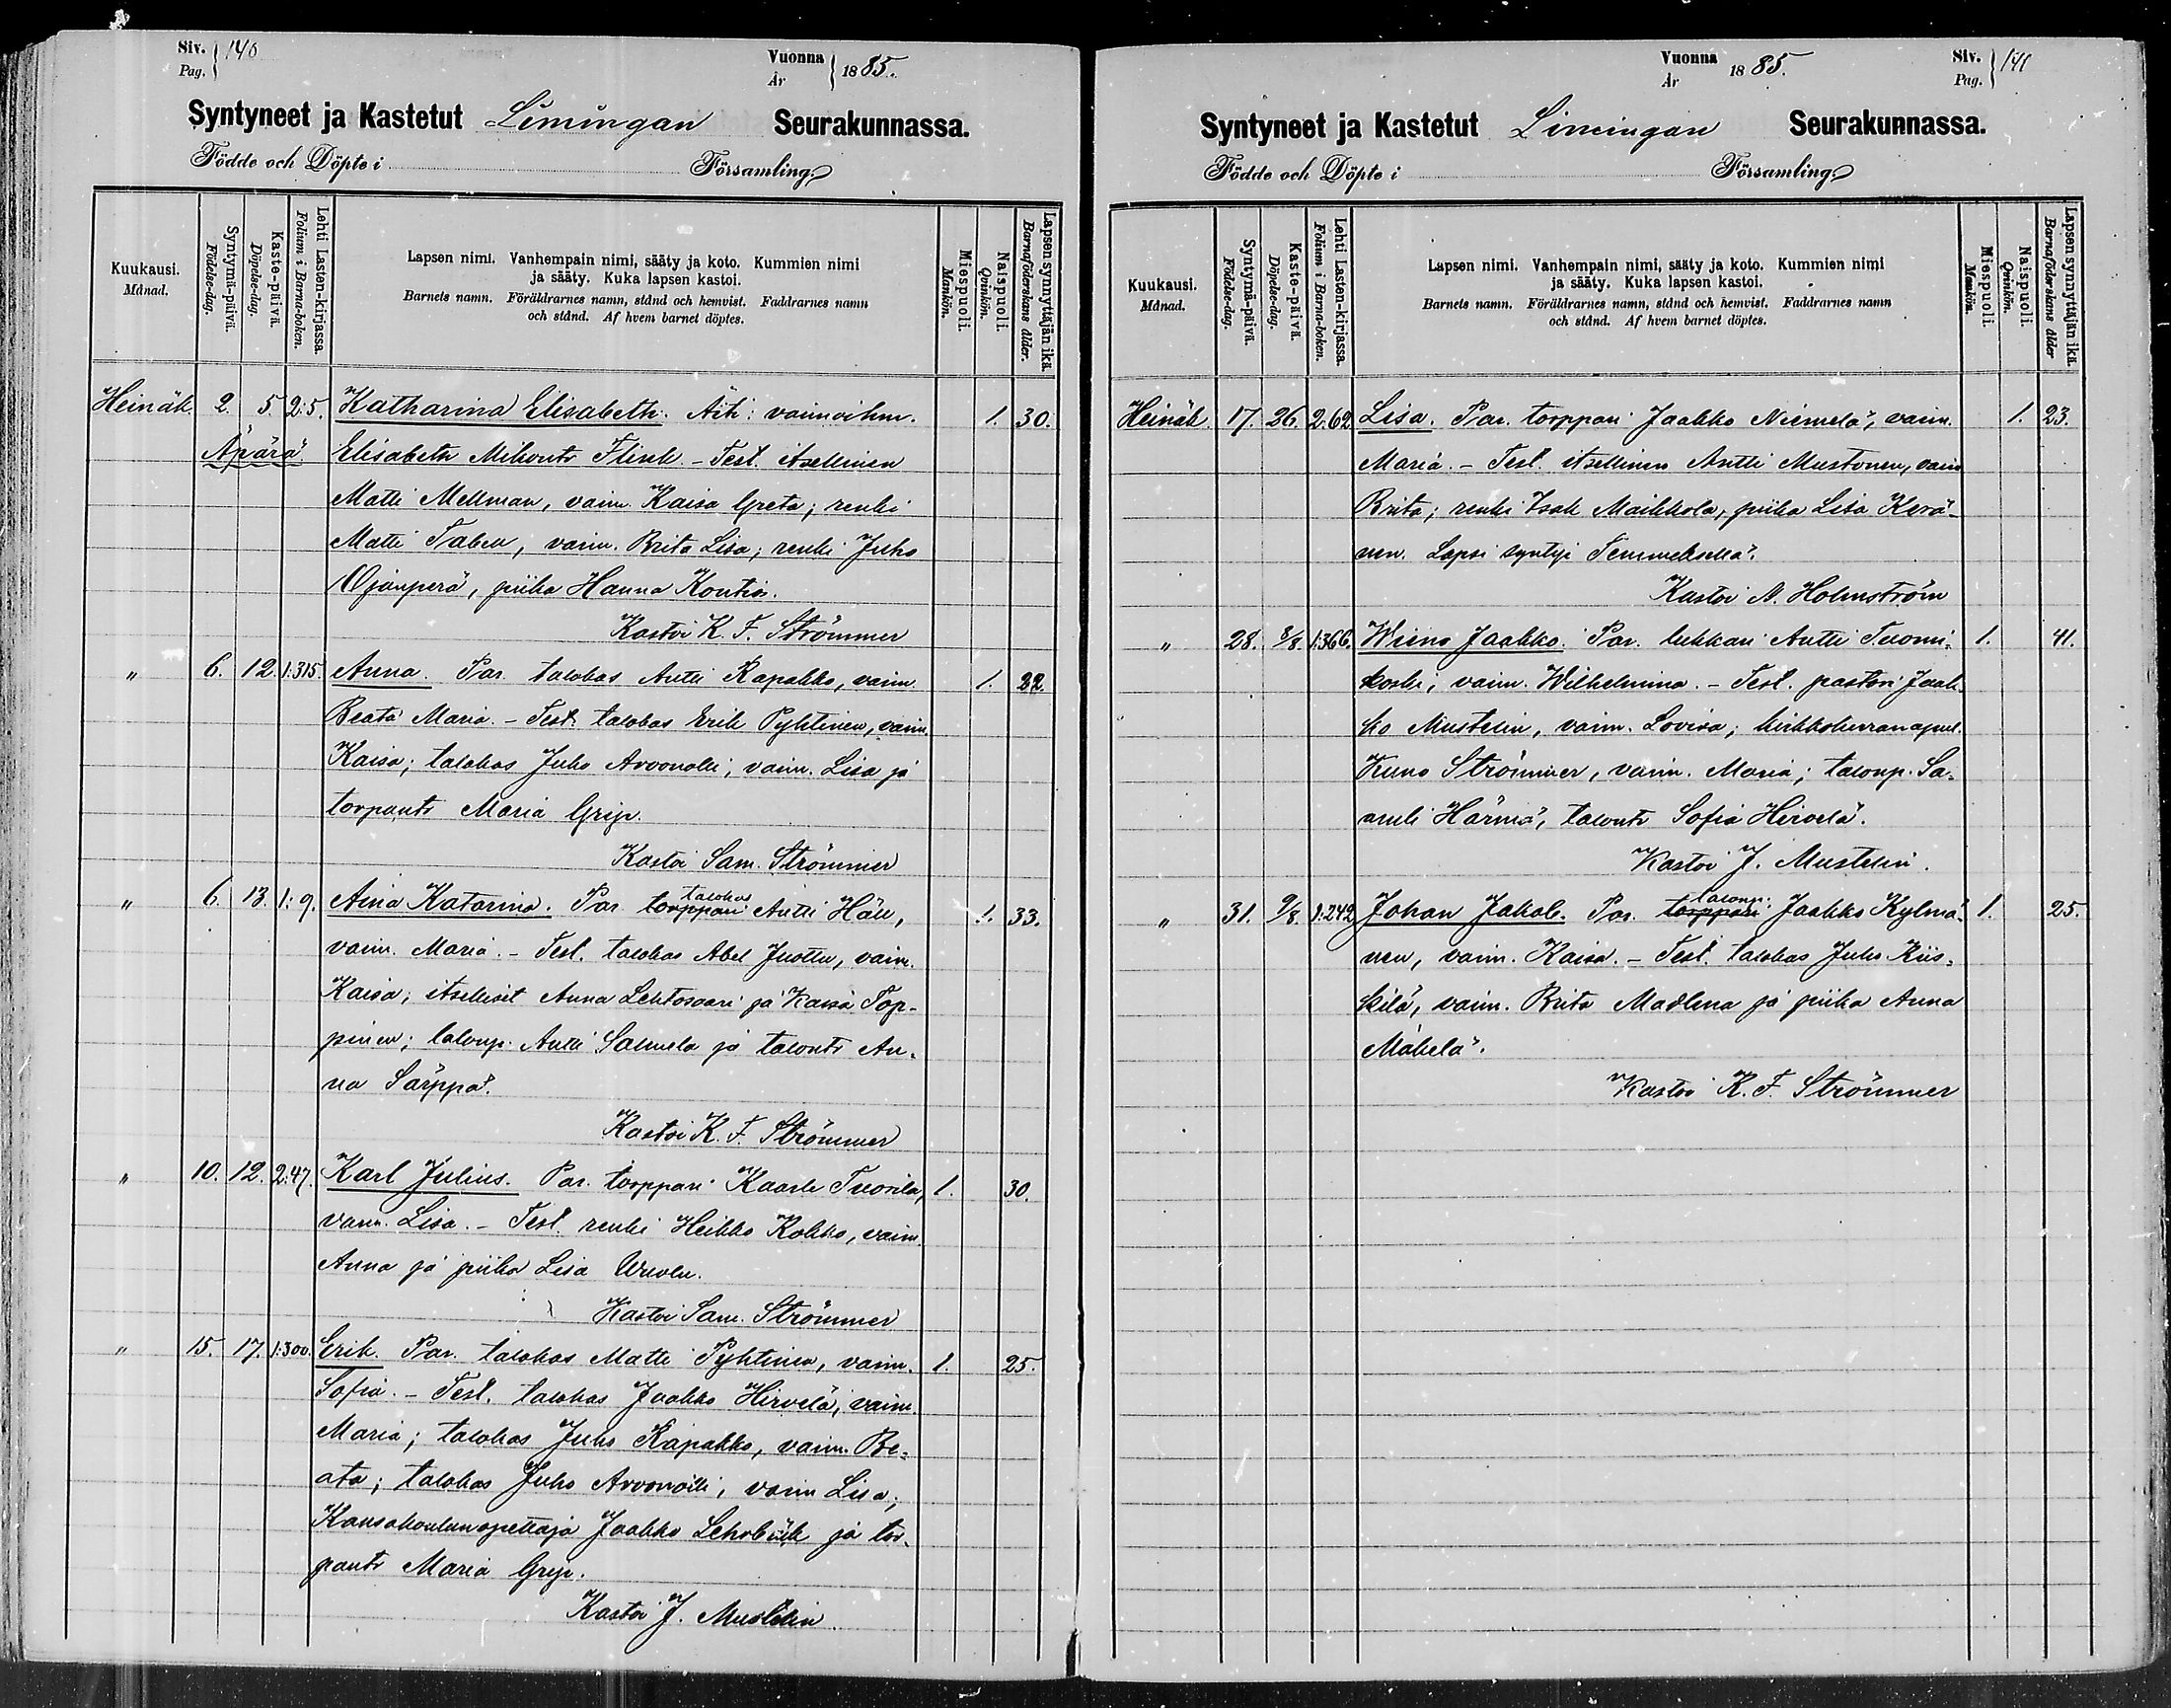 Siv. Pag. 140
Vuonna År 1885.
Syntyneet ja Kastetut Limingan Seurakunnassa.
Födde och Döpte i Församling
Kuukausi. Månad.
Syntymä-päivä. Födelse-dag.
Kaste-päivä. Döpelse-dag.
Lehti Lasten-kirjassa. Folium i Barna-boken.
Lapsen nimi. Vanhempain nimi, sääty ja koto. Kummien nimi
ja sääty. Kuka lapsen kastoi.
Barnets namn. Föräldrarnes namn, stånd och hemvist. Faddrarnes namn
och stånd. Af hvem barnet döptes.
Miespuoli. Mankön.
Naispuoli. Qvinkön.
Lapsen synnyttäjän ikä. Barnaföderskans ålder.
Heinäk. 2. 5. 2:5. Katharina Elisabeth. Äiti: vaimoihm. 1. 30.
Äpärä Elisabeth Mikontr Flink. - Test. itsellinen
Matti Mellman, vaim. Kaisa Greta; renki
Matti Taben, vaim. Brita Lisa; renki Juho
Ojanperä, piika Hanna Kontio.
Kastoi K. F. Strömmer
" 6. 12. 1:315. Anna. Par. talokas Antti Rapakko, vaim. 1. 22.
Beata Maria. - Test. talokas Erik Pyhtinen, vaim.
Kaisa; talokas Juho Arvonolli, vaim. Lisa ja
torpantr Maria Grip.
Kastoi Sam. Strömmer
" 6. 13. 1:9. Aina Katarina. Par. torppari talokas Antti Häll, 1. 33.
vaim. Maria. - Test. talokas Abel Juottu, vaim.
Kaisa; itselliset Anna Lehtosaari ja Kaisa Top-
pinen; talonp. Antti Salmela ja talontr An-
na Särppä.
Kastoi K. F. Strömmer
" 10. 12. 2:47. Karl Julius. Par. torppari Kaarle Tuorila, 1. 30.
vaim. Lisa. - Test. renki Heikko Kokko, vaim.
Anna ja piika Lisa
Kastoi Sam. Strömmer
" 15. 17. 1:300. Erik. Par. talokas Matti Pyhtinen, vaim. 1. 25.
Sofia. - Test. talokas Jaakko Hirvelä, vaim.
Maria; talokas Juho Rapakko, vaim. Be-
ata; talokas Juho Arvonolli, vaim Lisa;
Kansakoulunopettaja Jaakko Lehobäck ja tor-
pantr Maria Grip.
Kastoi J. Mustelin.
Vuonna År 1885.
Siv. Pag. 141
Syntyneet ja Kastetut Limingan Seurakunnassa.
Födde och Döpte i Församling
Kuukausi. Månad.
Syntymä-päivä. Födelse-dag.
Kaste-päivä. Döpelse-dag.
Lehti Lasten-kirjassa. Folium i Barna-boken.
Lapsen nimi. Vanhempain nimi, sääty ja koto. Kummien nimi
ja sääty. Kuka lapsen kastoi.
Barnets namn. Föräldrarnes namn, stånd och hemvist. Faddrarnes namn
och stånd. Af hvem barnet döptes.
Miespuoli. Mankön.
Naispuoli. Qvinkön.
Lapsen synnyttäjän ikä. Barnaföderskans ålder
Heinäk. 17. 26. 2:62 Lisa. Par. torppari Jaakko Niemelä, vaim. 1. 23.
Maria. - Test. itsellinen Antti Mustonen, vaim
Brita; renki Isak Maikkola, piika Lisa Kerä-
nen. Lapsi syntyi Temmeksellä.
Kastoi A. Holmström
" 28. 8/8. 1:366. Wieno Jaakko. Par. lukkari Antti Tuomi- 1. 41.
koski, vaim. Wilhelmina. - Test. pastori Jaak-
ko Mustelin, vaim. Lovisa; kirkkoherranapul.
Kuno Strömmer, vaim. Maria; talonp. Sa-
muli Härmä, talontr Sofia Hirvelä.
Kastoi J. Mustelin.
" 31. 9/8. 1:242 Johan Jakob. Par. torppari talonp. Jaakko Kylmä- 1. 25.
nen, vaim. Kaisa. - Test. talokas Juho Kiis-
kilä, vaim. Brita Madlena ja piika Anna
Mäkelä.
Kastoi K. F. Strömmer